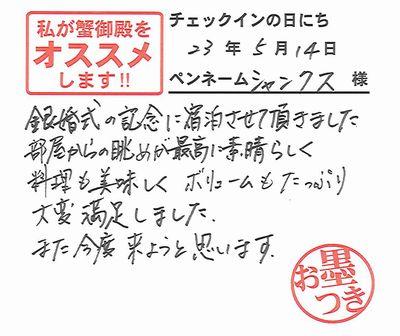 私が蟹御殿を
オススメ
します!!
チェックインの日にち
23年5月14日
ペンネームシャンクス 様
銀婚式の記念に宿泊させて頂きました
部屋からの眺めが最高に素晴らしく
料理も美味しく ボリュームもたっぷり
大変満足しました.
また今度来ようと思います.
お墨つき